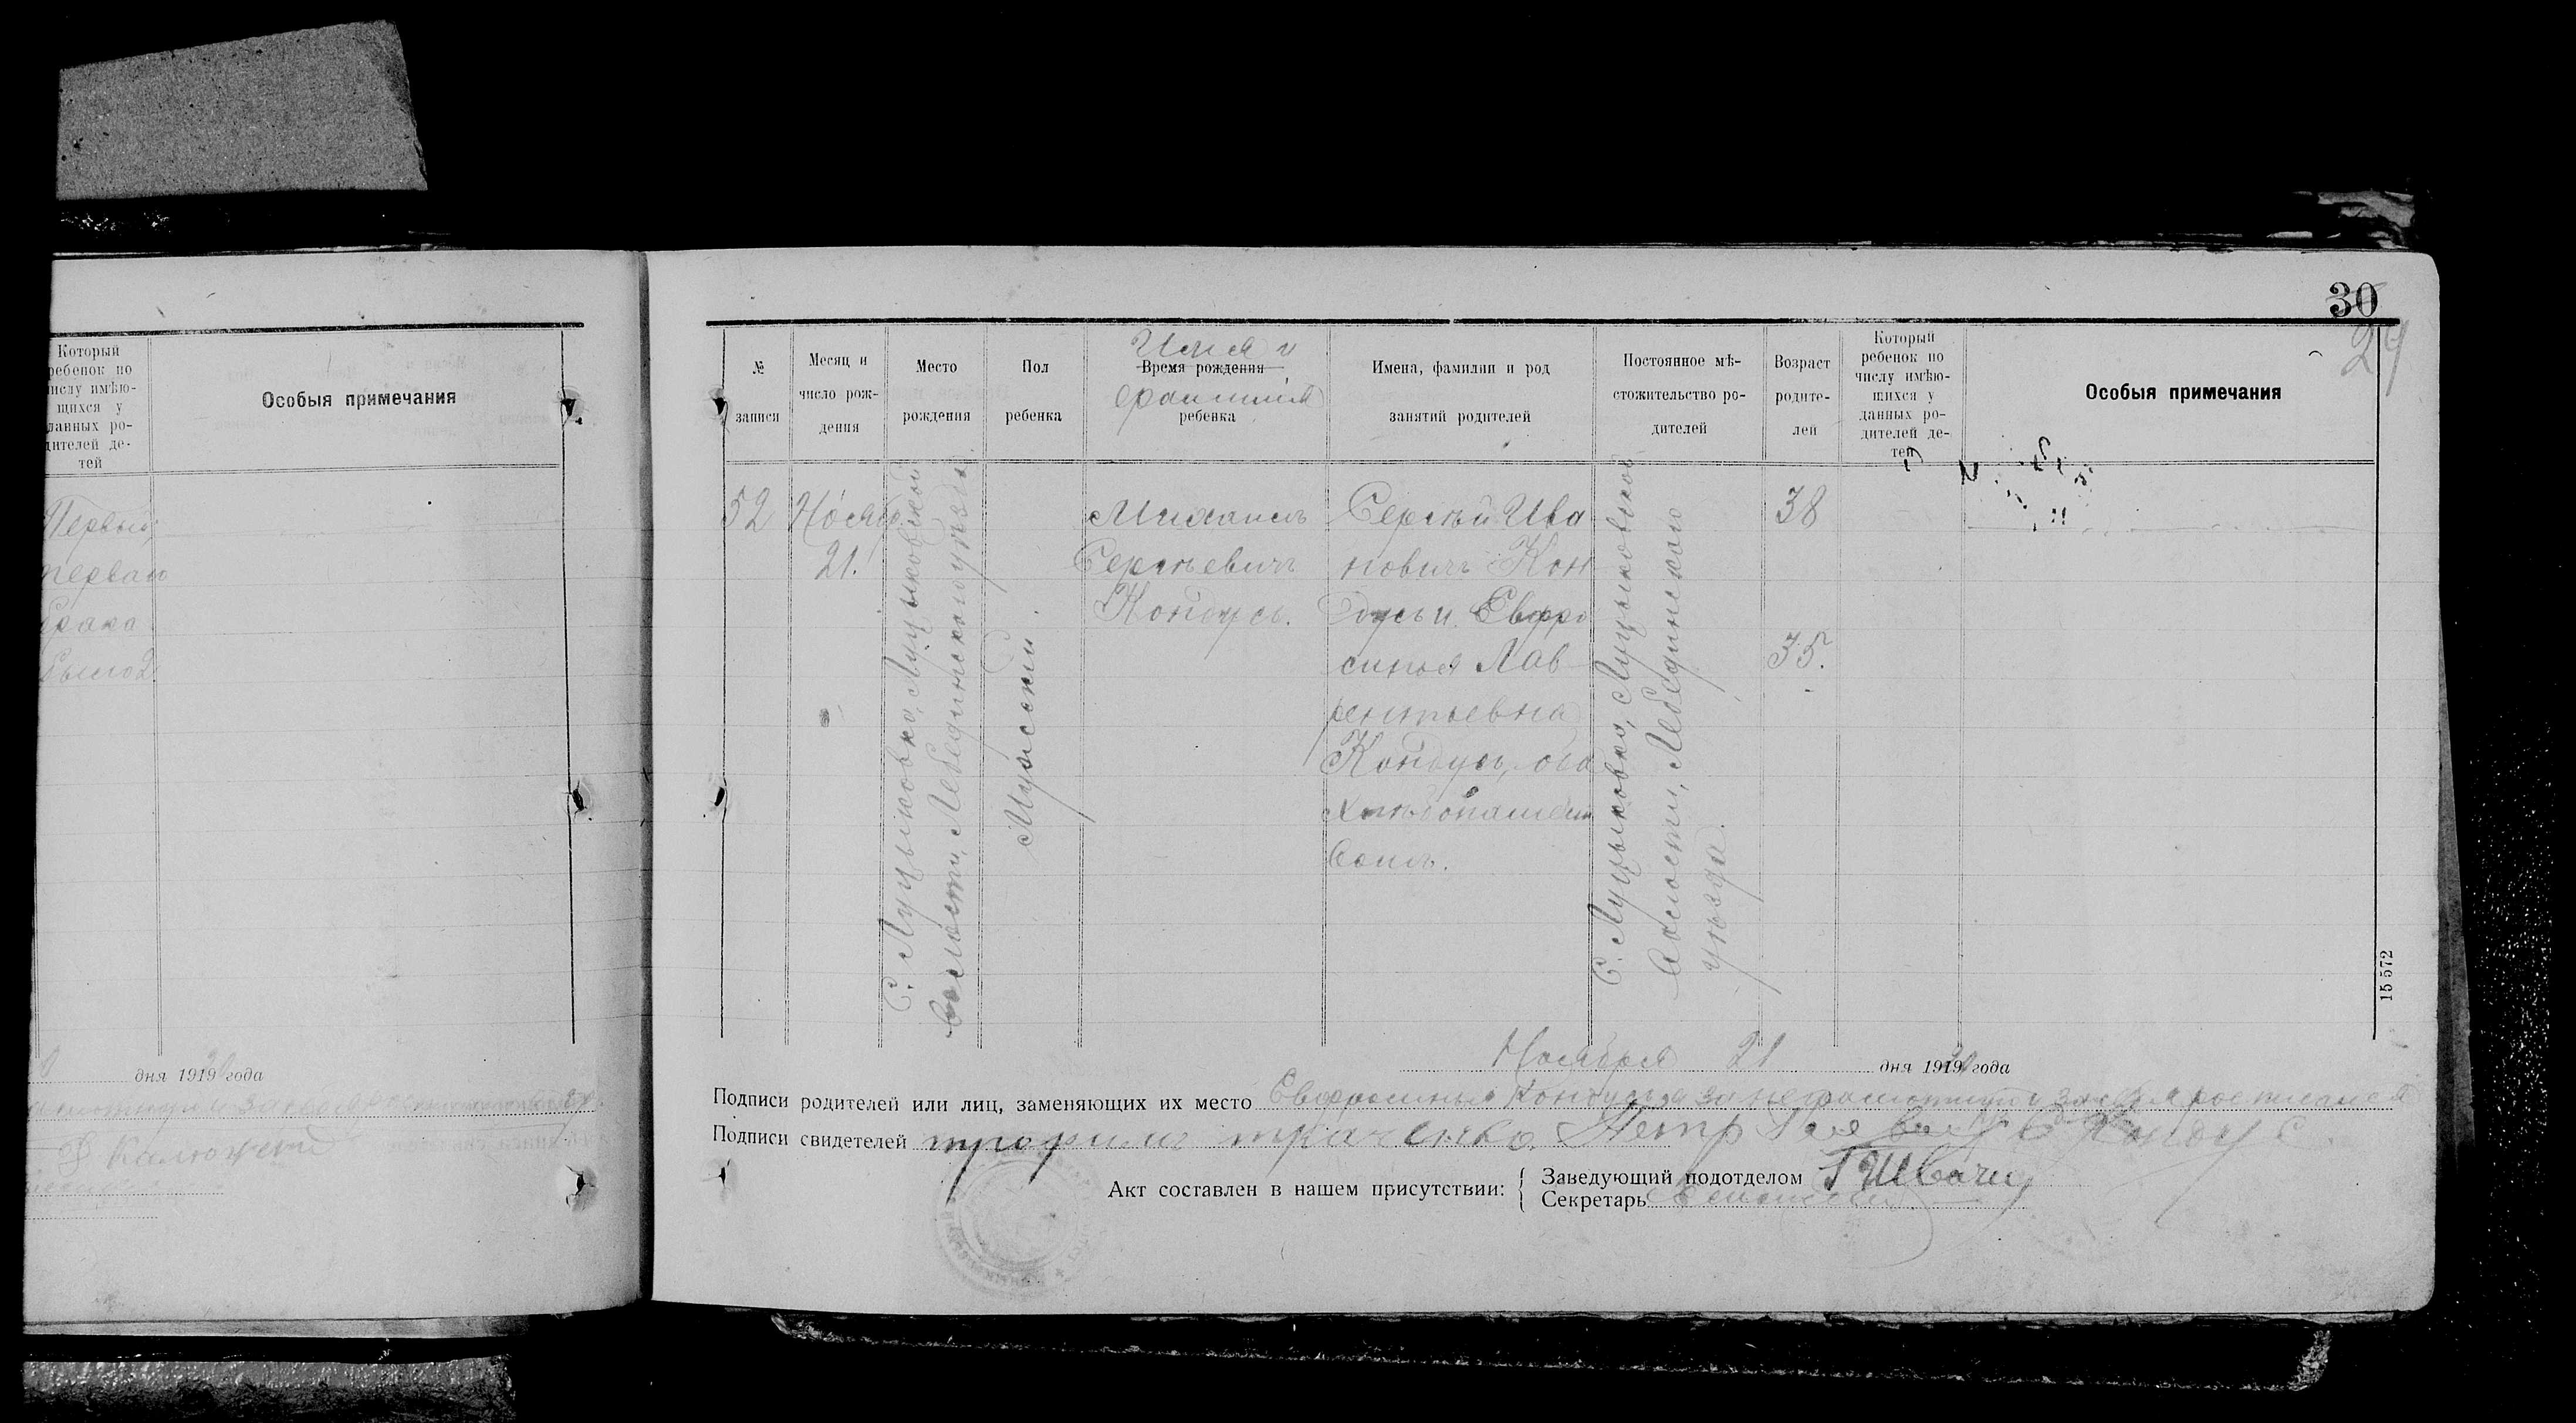 Который
ребенок по
числу имѣю-
щихся у
данных ро-
дителей де-
тей
Особыя примечания
Первый,
перваго
брака
дня 1919 года
30
29
№
записи
Месяц и
число рож-
дения
Место
рождения
Пол
ребенка
Имя и
Время рождения
фамилия
ребенка
Имена, фамилии и род
занятий родителей
Постоянное мѣ-
стожительство ро-
дителей
Возраст
родите-
лей
Который
ребенок по
числу имѣю-
щихся у
данных ро-
дителей де-
тей
Особыя примечания
52
Ноябр.
21.
С. Луцыковка, Луцыковской
волости, Лебединского уѣзда
Мужеский
Михаилъ
Сергѣевичъ
Кондусь.
Сергѣй Ива
новичъ Кон
дусь и Евфро
синия Лав
рентьевна
Кондусь, оба
хлѣбопашест
вомъ.
С. Луцыковка, Луцыковской
волости, Лебединского
уѣзда.
38
35.
15572
Ноября 21 дня 1919 года
Подписи родителей или лиц, заменяющих их место Евфросиния Кондусь а за неграмотную
Подписи свидетелей трофим ткаченко Петр Кондус.
Акт составлен в нашем присутствии:
Заведующий подотделом Г Швачи
Секретарь